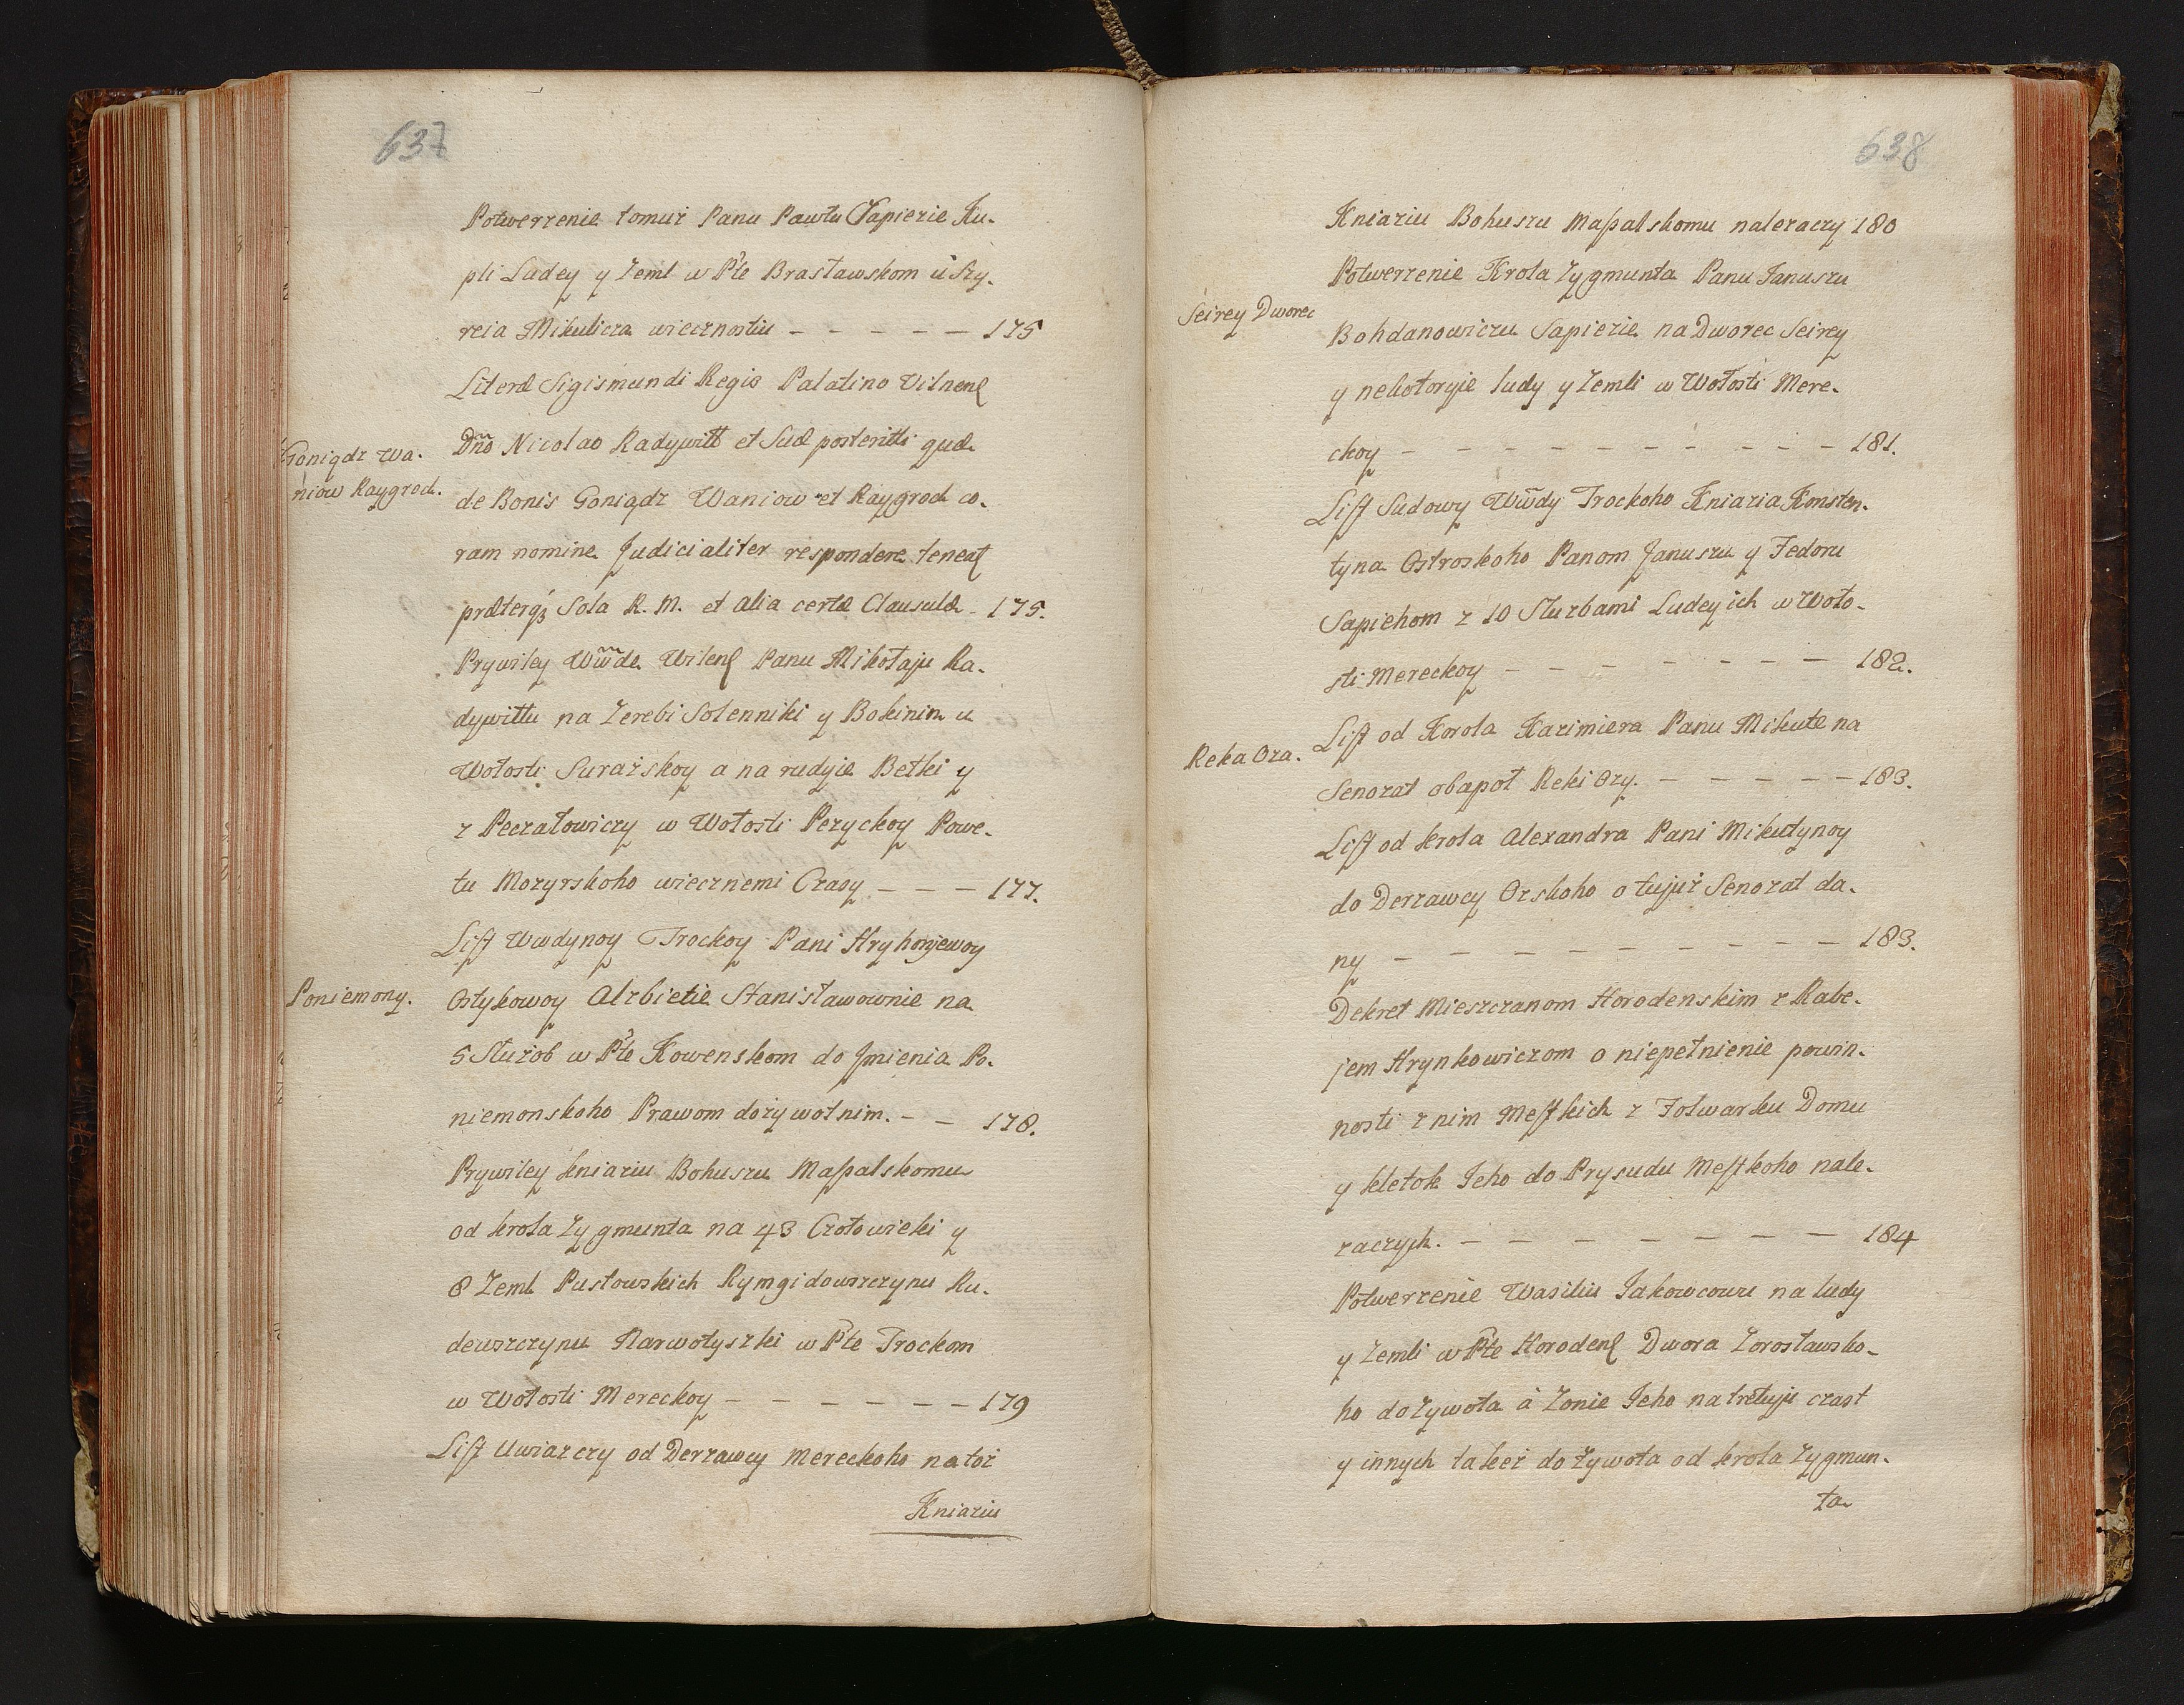 637
Potwerzenie tomuż Panu Pawłu Sapiezie Ku-
pli Ludey y Zeml w Płe Brasławskom u Szy-
reia Mikulicza wiecznostiu – – – – – 175
Literæ Sigismundi Regis Palatino Vilnenſ
Goniądz Wa-
niow Raygrod.
Dño Nicolao Radywiłł et Suæ posteritti quæ
de Bonis Goniądz Waniow et Raygrod co-
ram nomine Judicialiter respondere teneat
præterq́ʒ Sola R. M. et alia certæ Clausulæ - 175.
Prywiley Ww̃de Wilenſ Panu Mikołaju Ra-
dywiłłu na Zerebi Solenniki y Bokinin u
Wołosti Surażskoy a na rudyie Bełki y
z Peczałowiczy w Wołosti Pezyckoy Powe-
tu Mozyrskoho wiecznemi Czasy – – – 177.
List Wwdynoy Trockoy Pani Hryhorjewoy
Poniemony.
Ostykowoy Alzbietie Stanisławownie na
5 Służob w Płe Kowenskom do Jmienia Po-
niemonskoho Prawom dożywotnim. – – 178.
Prywiley kniaziu Bohuszu Maſsalskomu
od krola Zygmunta na 43 Czołowieki y
8 Zeml Pustowskich Rymgidowszczynu Ru-
dewszczynu Narwotyszki w Płe Trockom
w Wołosti Mereckoy – – – – – – 179
List Uwiazczy od Derzawcy Mereckoho na toż
Kniaziu
638
Kniaziu Bohuszu Maſsalskomu nalezaczy 180
Potwerzenie Krola Zygmunta Panu Januszu
Seirey Dworec
Bohdanowiczu Sapiezie na Dworec Seirey
y nekotoryie ludy y Zemli w Wołosti Mere-
ckoy – – – – – – – – – 181.
List Sudowy Ww̃dy Trockoho Kniazia Konstan-
tyna Ostroskoho Panom Januszu y Fedoru
Sapiehom z 10 Służbami Ludey ich w Woło-
sti Mereckoy – – – – – – – 182.
List od Korola Kazimiera Panu Mikute na
Reka Oza.
Senozat obapoł Reki Ozy. – – – – – 183.
List od krola Alexandra Pani Mikutynoy
do Derzawcy Ozskoho o tujuż Senozat da-
ny – – – – – – – – – 183.
Dekret Mieszczanom Horodenskim z Rabe-
jem Hrynkowiczom o niepełnienie powin-
nosti z nim Mestkich z Folwarku Domu
y kletok Jeho do Prysudu Mestkoho nale-
zaczych. – – – – – – – – 184
Potwerzenie Wasiliu Jakowcowu na ludy
y Zemli w Płe Horodenſ Dwora Zorosławsko-
ho do Zywota à Zonie Jeho na tretuju czast
y innych takeż do żywota od krola Zygmun-
ta